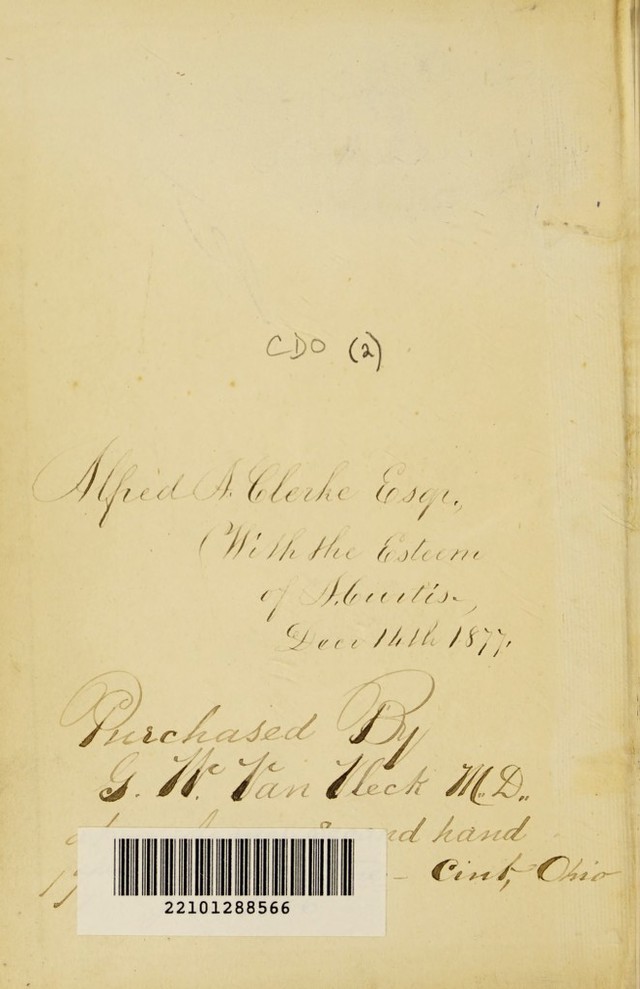 CDO (2)
Alfred A. Clerke Esqr.,
With the Esteem
of A. Curtis,
Decr 14th 1877.
Purchased By
G. W. Van Vleck M.D.
hand
Cint, Ohio
22101288566